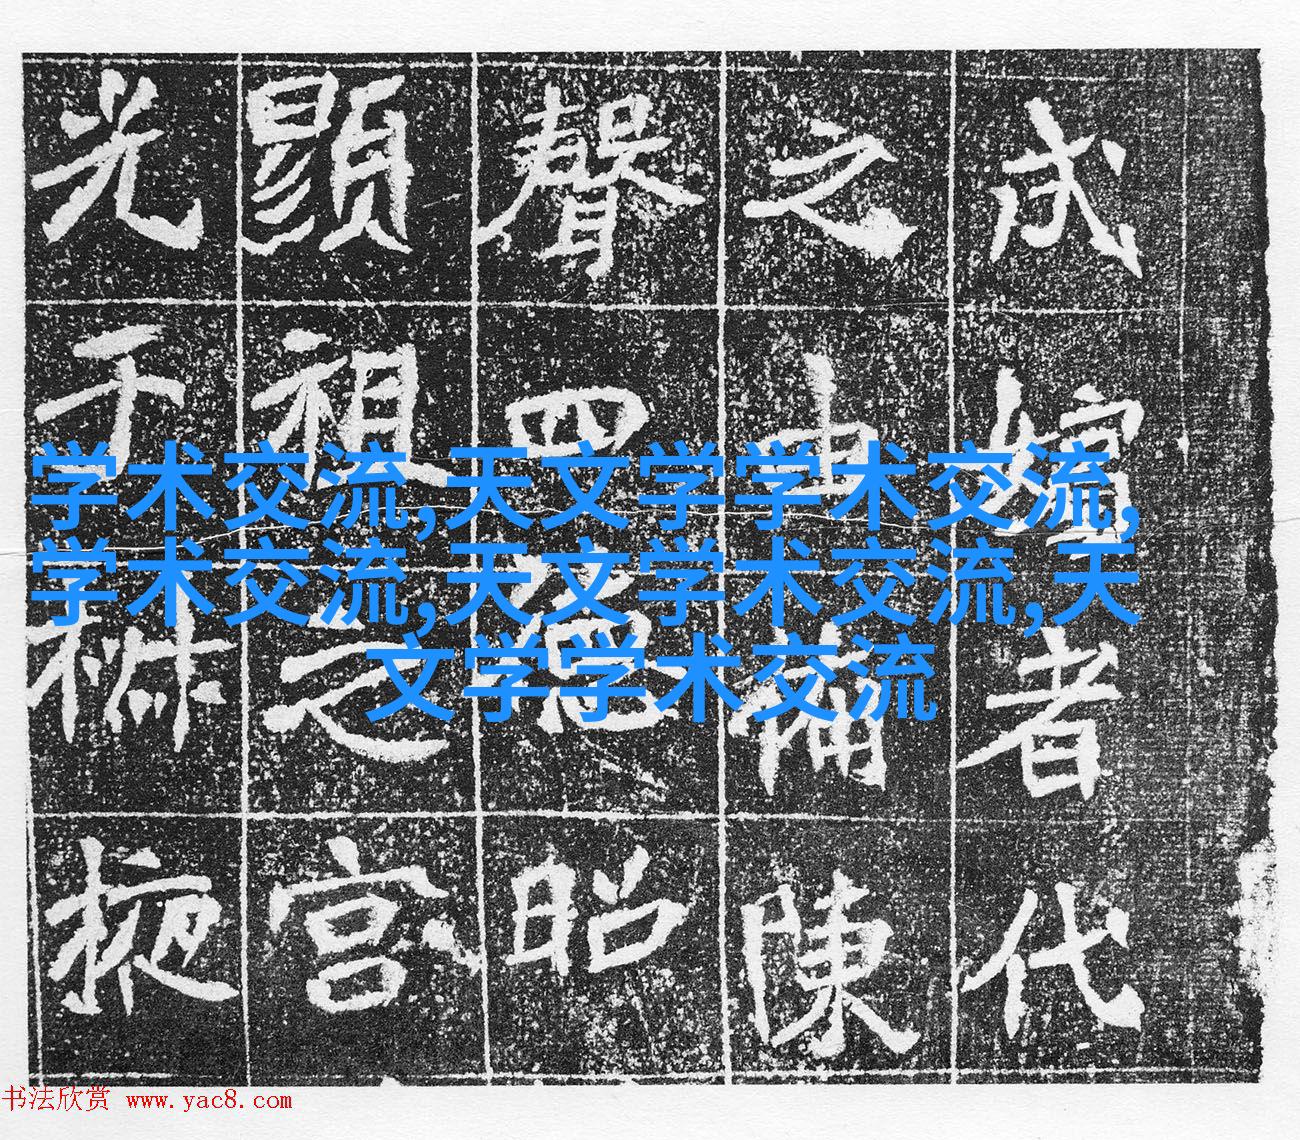 者代
之陳
聲四德昭
顯祖之宮
光于椒掖
学术交流,天文学学术交流,
学术交流,天文学术交流,天
文学学术交流
书法欣赏 www.yac8.com